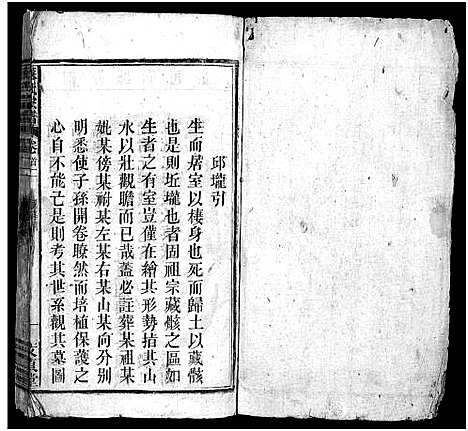 邱壠引
生而居室以棲身也死而歸土以藏骸
也是則坵壠也者固祖宗藏骸之區如
生者之有室豈僅在繪其形勢掯其山
水以壯觀瞻而已哉蓋必註葬某祖某
妣某傍某祔某左某右某山某向外别
明悉使子孫開卷瞭然而培植保護之
心自不能亡是則考其世系觀其墓圖